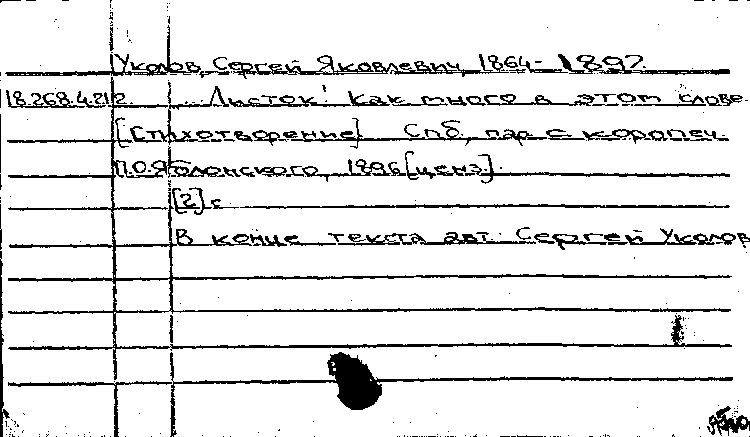 Уколов, Сергей Яковлевич, 1864-1897.
18.268.4.212. ...Листок! Как много в этом слове
[Стихотворение] Спб, пар. скоропеч.
П.О.Яблонского, 1896[ценз.].
[2]с
В конце текста авт.: Сергей Уколов